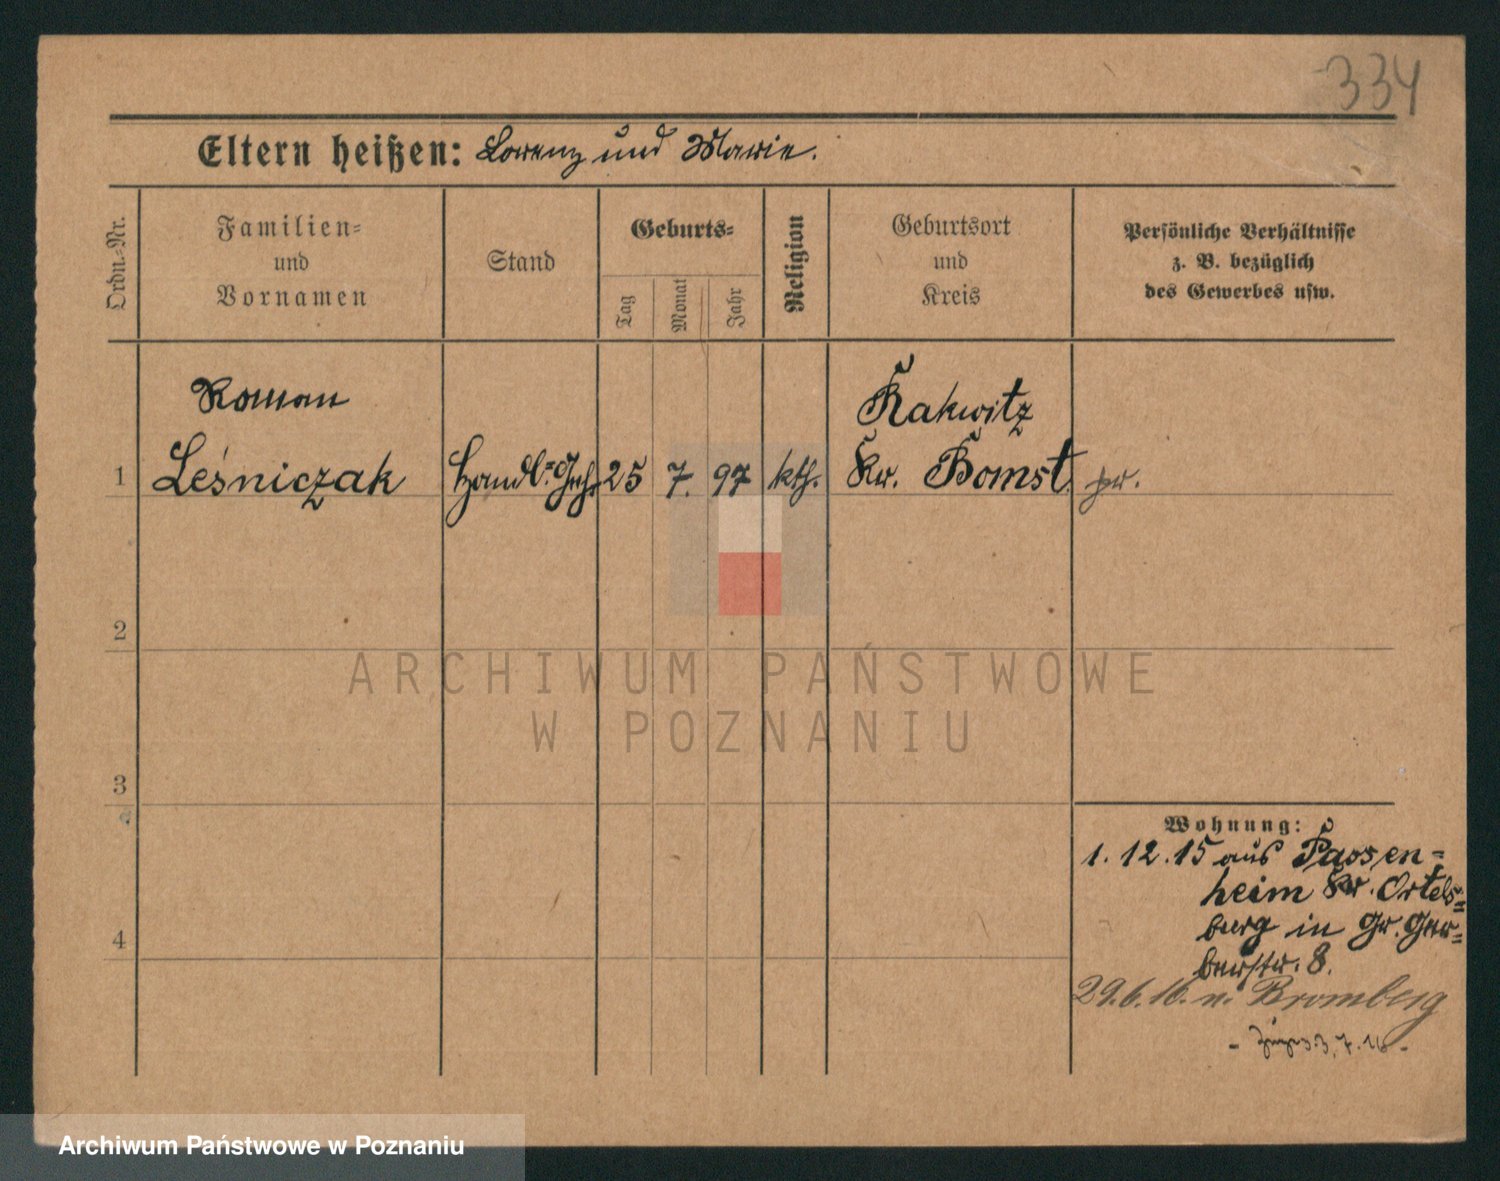 334
Eltern heißen: Lorenz und Marie.
Ordn.-Nr.
Familien-
und
Vornamen
Stand
Geburts-
Tag
Monat
Jahr
Religion
Geburtsort
und
Kreis
Persönliche Verhältnisse
z. B. bezüglich
des Gewerbes usw.
Roman
Rakwitz
1 Leśniczak Handl. Geh. 25 7. 97 kth. Kr. Bomst. pr.
2
ARCHIWUM PAŃSTWOWE
W POZNANIU
3
Wohnung:
1. 12. 15 aus Passen=
heim Kr. Ortels=
burg in Gr. Ger=
berstr. 8.
4
29.6.16. n. Bromberg
3.7.16-
Archiwum Państwowe w Poznaniu